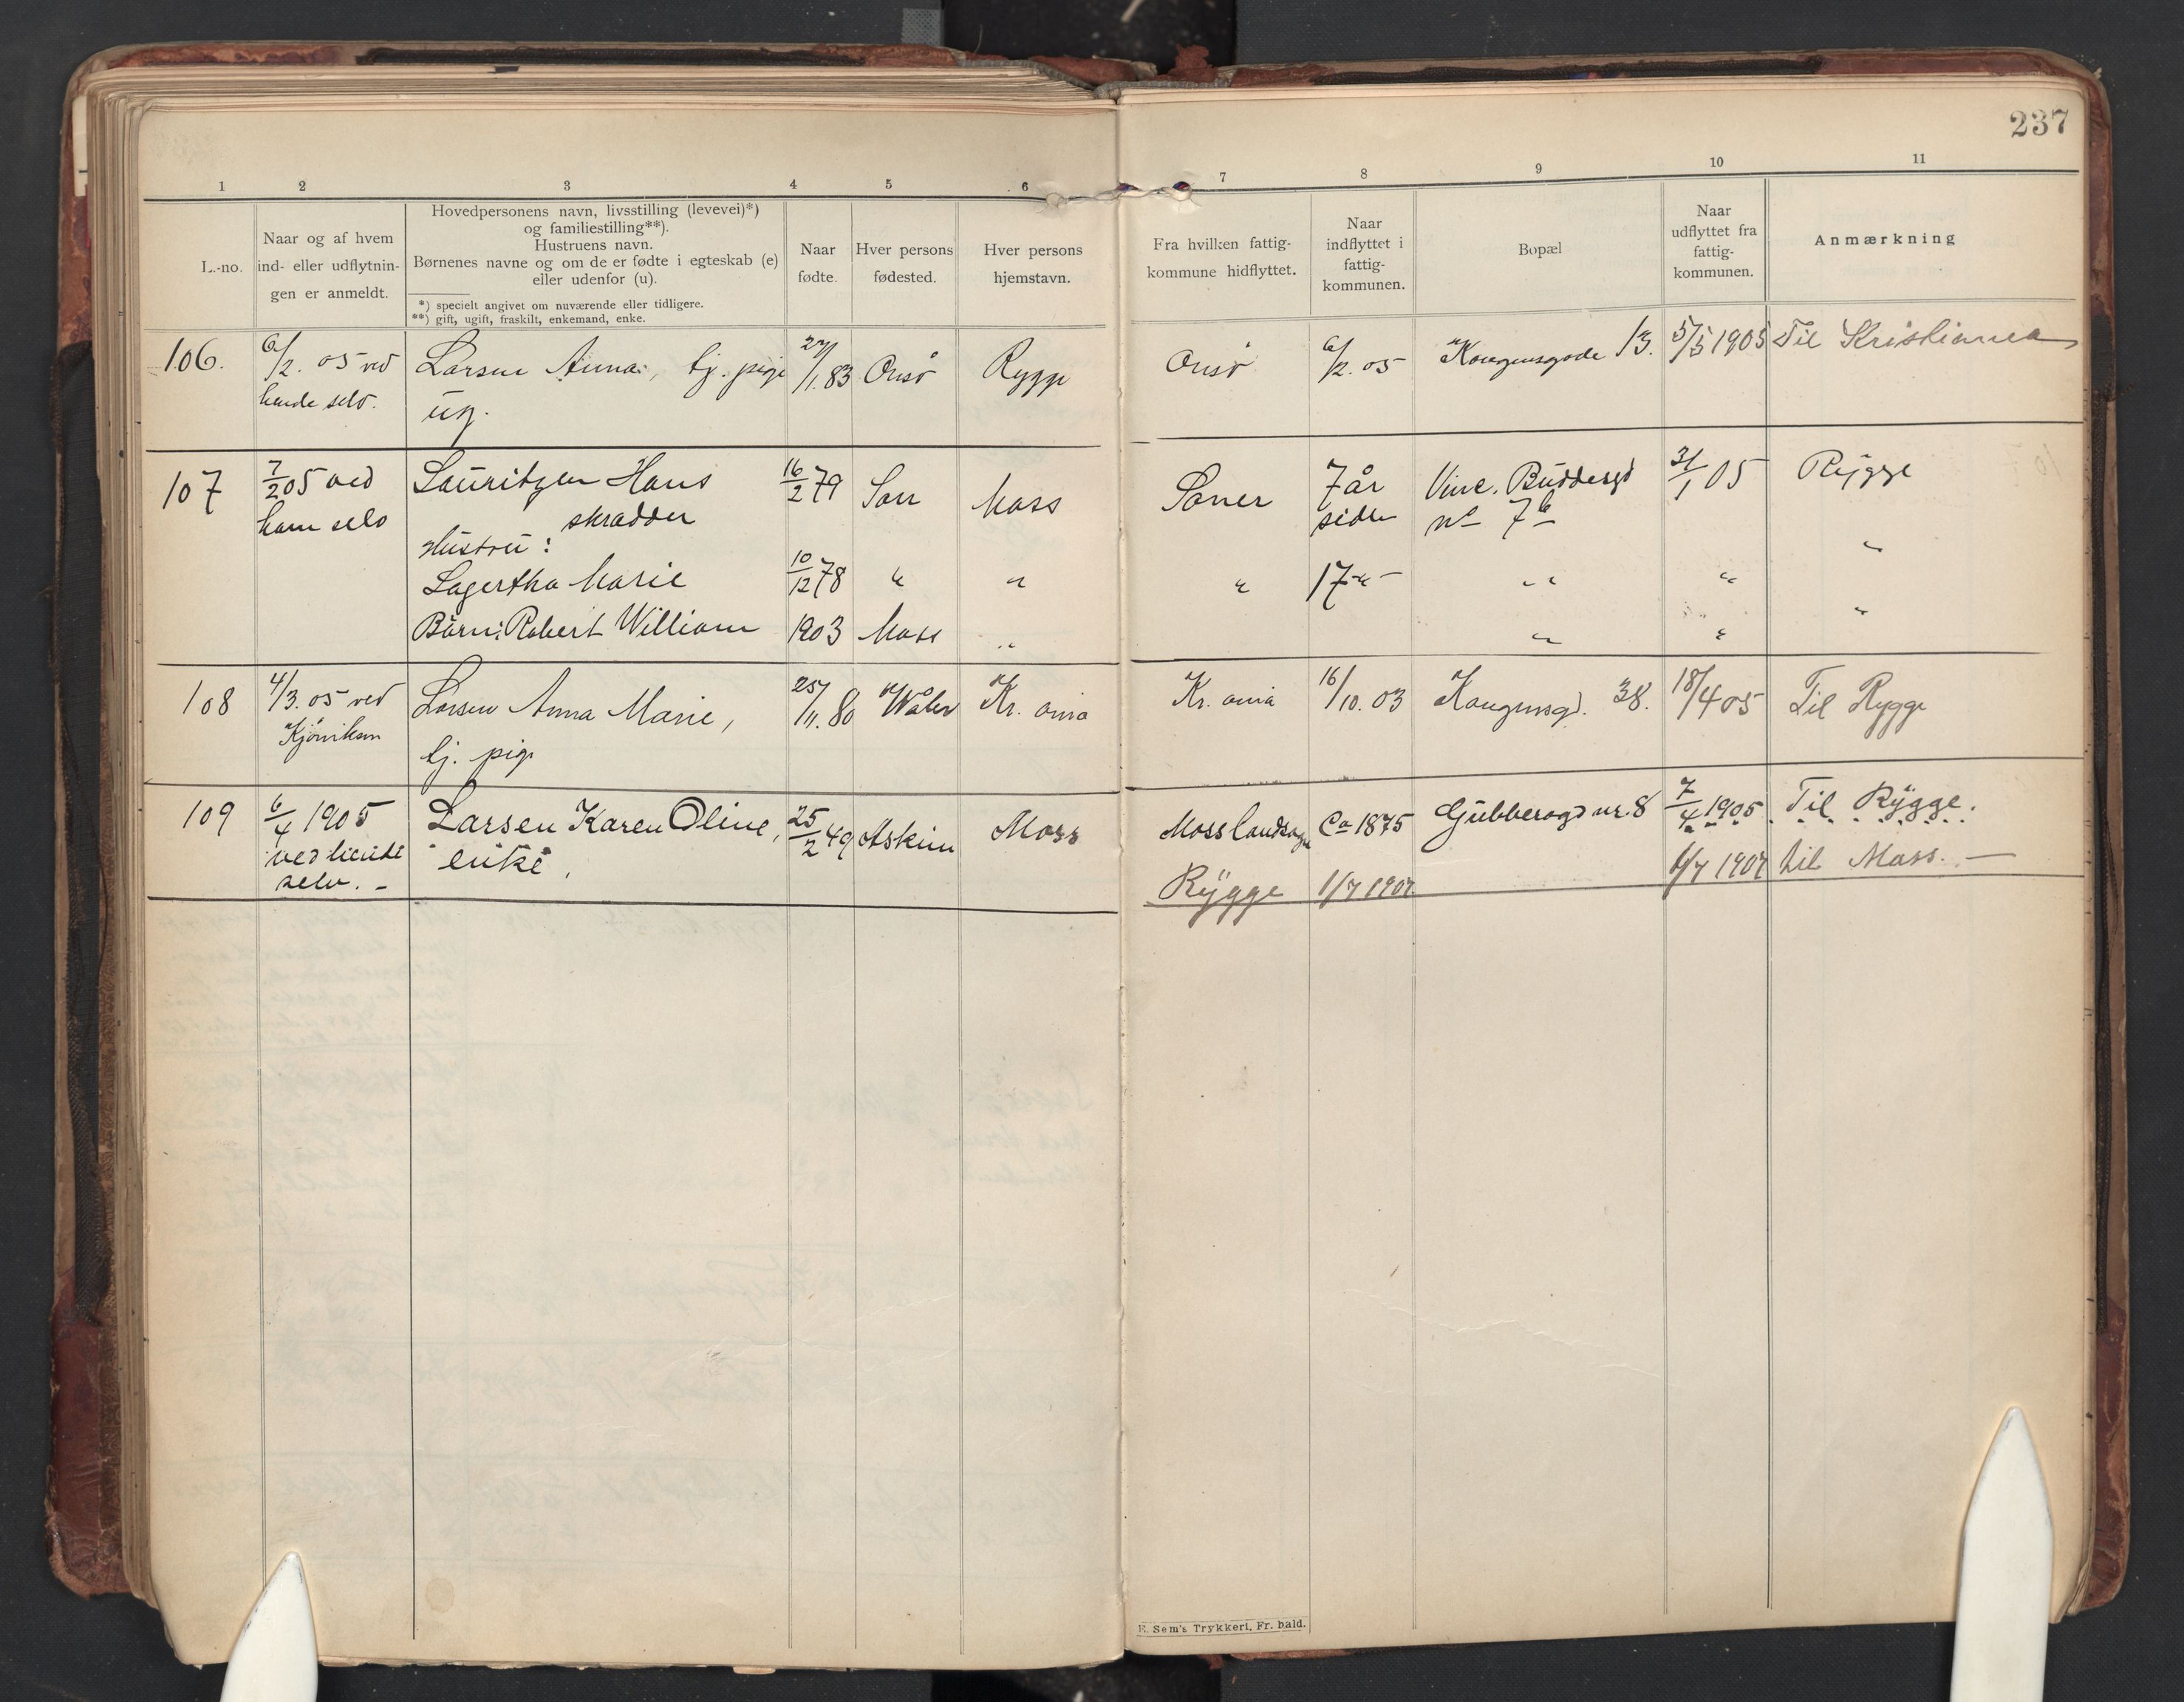 237
1 2 3 4 5 6 7 8 9 10 11
L.-no.
Naar og af hvem
ind- eller udflytnin-
gen er anmeldt.
Hovedpersonens navn, livsstilling (levevei)*)
og familiestilling**).
Hustruens navn.
Børnenes navne og om de er fødte i egteskab (e)
eller udenfor (u).
*) specielt angivet om nuværende eller tidligere.
**) gift, ugift, fraskilt, enkemand, enke.
Naar
fødte.
Hver persons
fødested.
Hver persons
hjemstavn.
Fra hvilken fattig-
kommune hidflyttet.
Naar
indflyttet i
fattig-
kommunen.
Bopæl
Naar
udflyttet fra
fattig-
kommunen.
Anmærkning
106. 6/2. 05 ved Larsen Anna, tj. pige 27/1. 83 Onsö Rygge Onsö 6/2. 05 Kongensgade 13. 5/5 1905 Til Kristiania
hende selv. ug.
107 7/2 05 ved Lauritzen Hans 16/2 79 Son Moss Soner 7 år Vinc. Buddesgd 31/1 05 Rygge
ham selv skrædder siden no 7b
Hustru: "
Lagertha Marie 10/12 78 " " " 17 " - " " "
Börn: Robert William 1903 Moss " " " "
108 4/3. 05 ved Larsen Anna Marie, 25/11. 80 Våler Kr. ania Kr. ania 16/10. 03 Kongensgd. 38. 18/4 05 Til Rygge
tj. pige
109 6/4 1905 Larsen Karen Oline, 25/2 49 Askim Moss Moss landsogn Ca 1875 Gubberogd nr. 8 7/4 1905 Til Rygge.
ved hende enke. 1/7 1907 til Moss. —
selv. - Rygge 1/7 1907.
E. Sem's Trykkeri, Fr. hald.